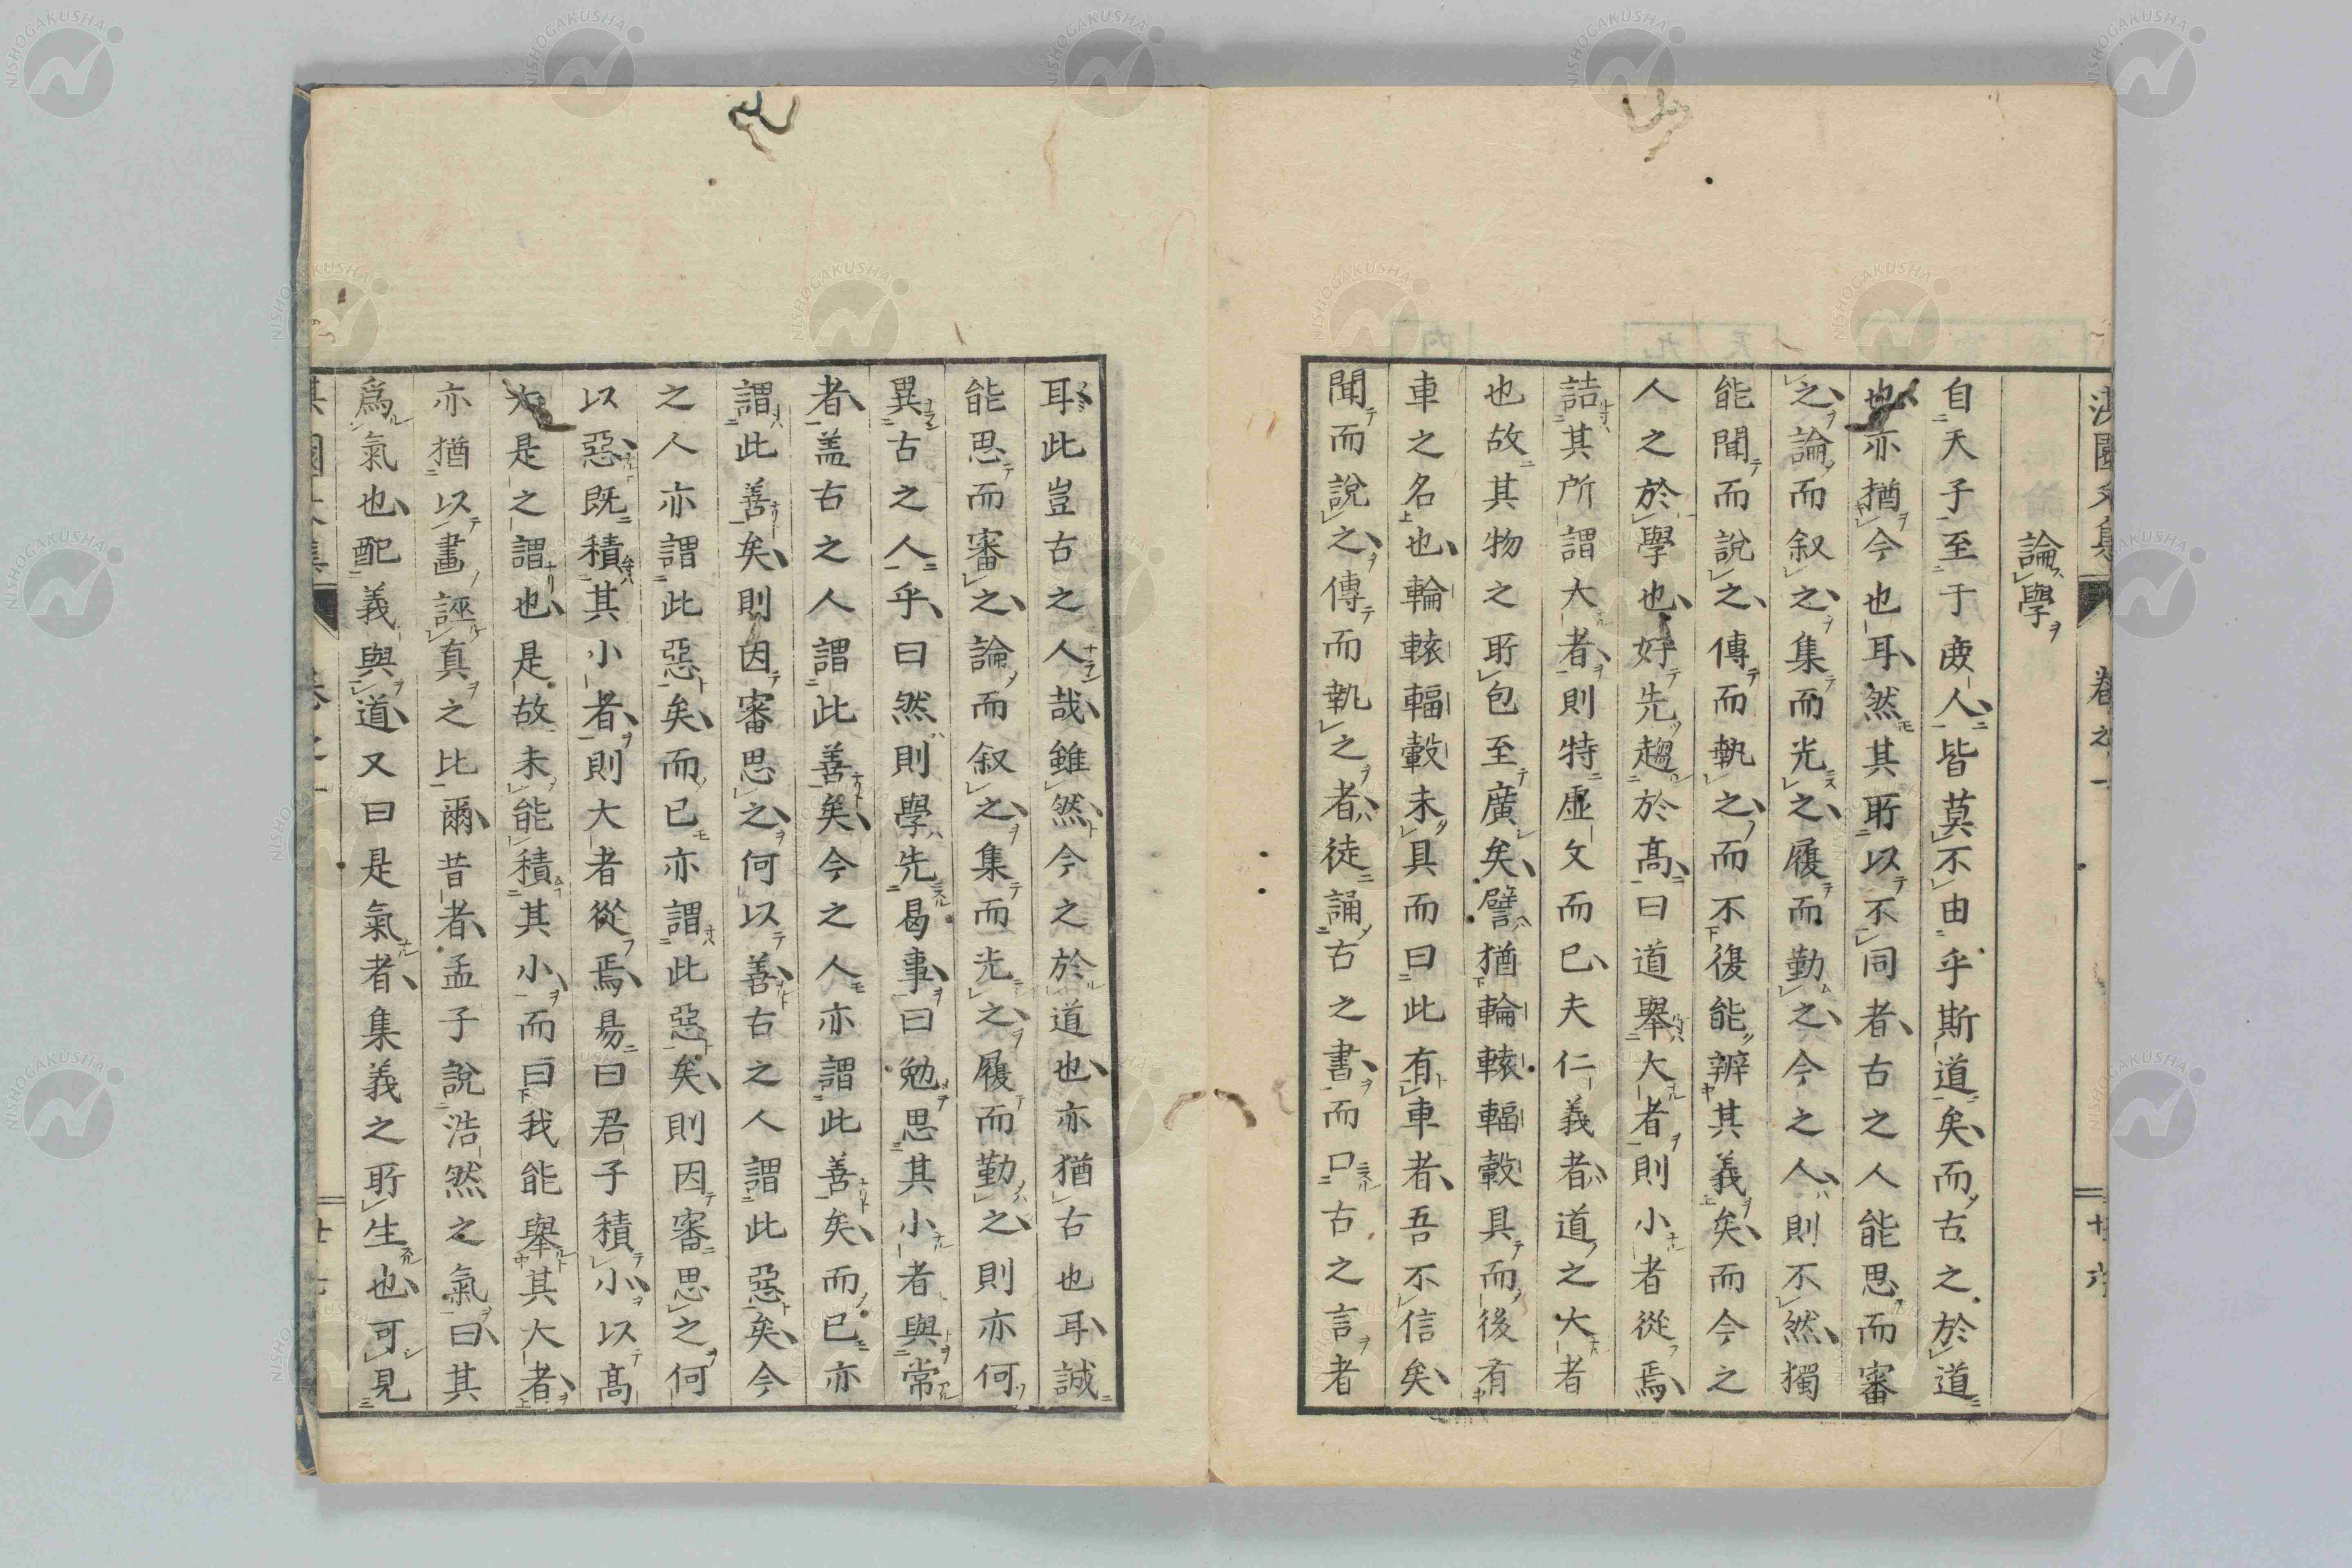 論學
自天子至于庻人皆莫不由乎斯道矣而古之於道
也亦猶今也耳然其所以不同者古之人能思而審
之論而叙之集而光之履而勤之今之人則不然獨
能聞而說之傳而執之而不復能辨其義矣而今之
人之於學也好先趨於髙曰道舉大者則小者從焉
詰其所謂大者則特虛文而已夫仁義者道之大者
也故其物之所包至廣矣譬猶輪轅輻轂具而後有
車之名也輪轅輻轂未具而曰此有車者吾不信矣
聞而說之傳而執之者徒誦古之書而口古之言者
耳此豈古之人哉雖然今之於道也亦猶古也耳誠
能思而審之論而叙之集而光之履而勤之則亦何
異古之人乎曰然則學先曷事曰勉思其小者與常
者盖古之人謂此善矣今之人亦謂此善矣而已亦
謂此善矣則因審思之何以善古之人謂此惡矣今
之人亦謂此惡矣而已亦謂此惡矣則因審思之何
以惡既積其小者則大者從焉易曰君子積小以髙
大是之謂也是故未能積其小而曰我能舉其大者
亦猶以畫誣真之比爾昔者孟子說浩然之氣曰其
爲氣也配義與道又曰是氣者集義之所生也可見
卷之一
十六
NISHOGAKUSHA